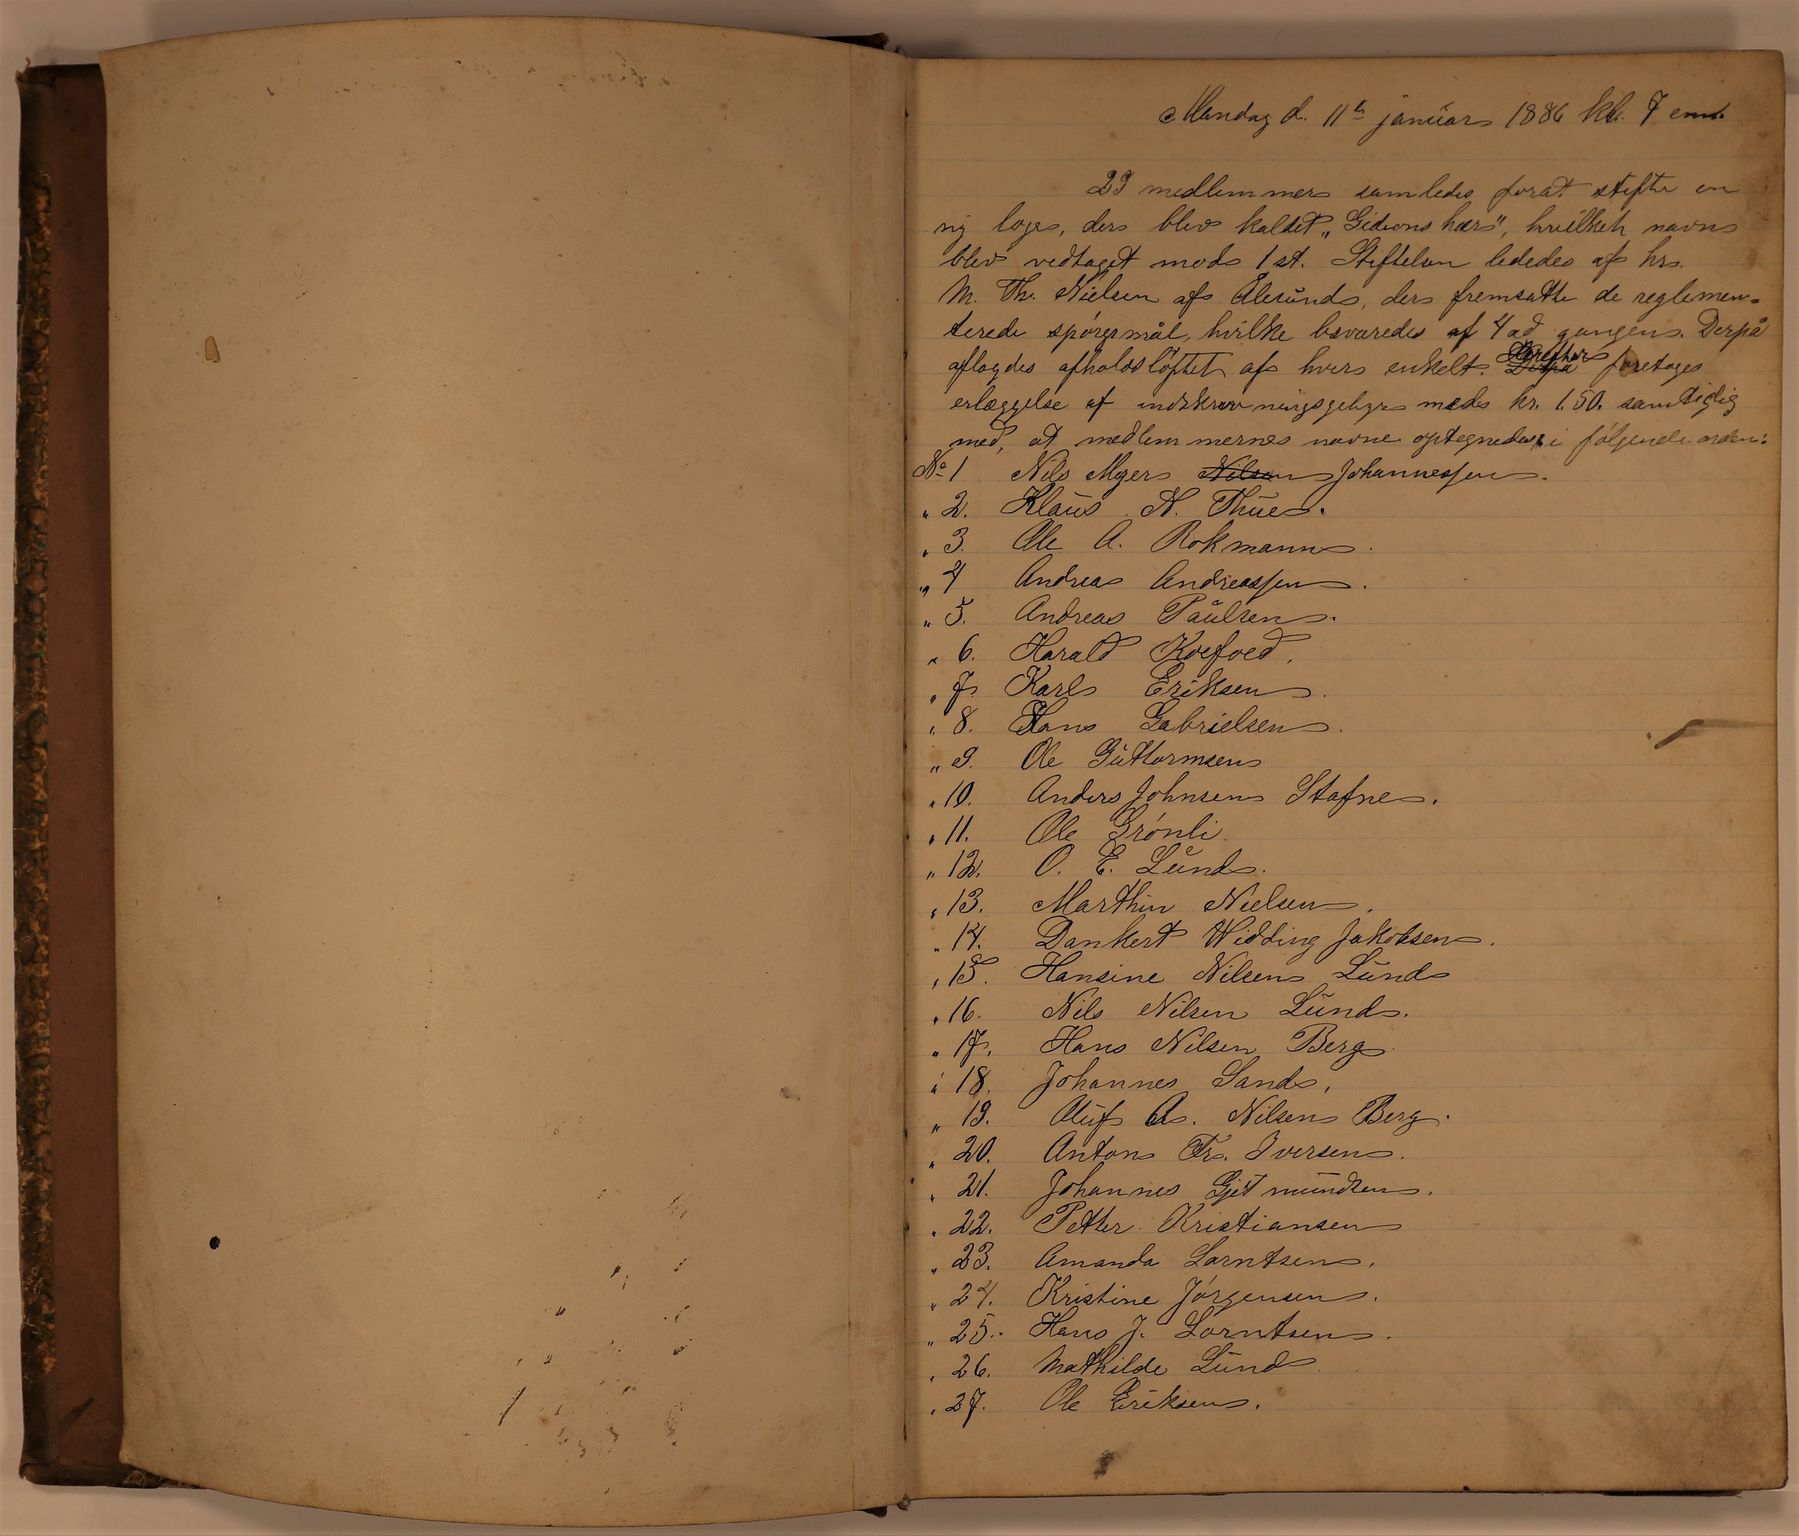 Mandag d. 11te januar 1886 kl. 7 em.
29 medlemmer samledes forat stifte en
ny loge, der blev kaldet „Gideons hær", hvilket navn
blev vedtaget mod 1 st. Stiftelsen lededes af hr.
M. Th. Nielsen af Ålesund, der fremsatte de reglemen-
terede spórgsmål, hvilke besvaredes af 4 ad gangen. Derpå
aflagdes afholdslöftet af hver enkelt. Derefter foretoges
erlæggelse af indskrivningsgebyr med kr. 1.50. samtidig
med, at medlemmernes navne optegnedes i fólgende orden:
No 1 Nils Myer Nilsen Johannessen.
" 2. Klaus N. Thue.
" 3. Ole A. Rokmann.
" 4 Andreas Andreassen.
" 5. Andreas Paulsen.
" 6. Harald Koefoed.
" 7. Karl Eriksen.
" 8. Hans Gabrielsen.
" 9. Ole Guttormsen
" 10. Anders Johnsen Stafne.
" 11. Ole Grónli.
" 12. O. E. Lund.
" 13. Marthin Nielsen.
" 14. Dankert Widding Jakobsen.
" 15. Hansine Nilsen Lund
" 16. Nils Nilsen Lund.
" 17. Hans Nilsen Berg.
" 18. Johannes Sand.
" 19. Oluf A. Nilsen Berg.
" 20. Anton Fr. Iversen.
" 21. Johannes Gjetmundsen.
" 22. Petter Kristiansen
" 23. Amanda Lorntsen.
" 24. Kristine Jórgensen.
" 25. Hans J. Lorntsen.
" 26. Mathilde Lund
" 27. Ole Eriksen.